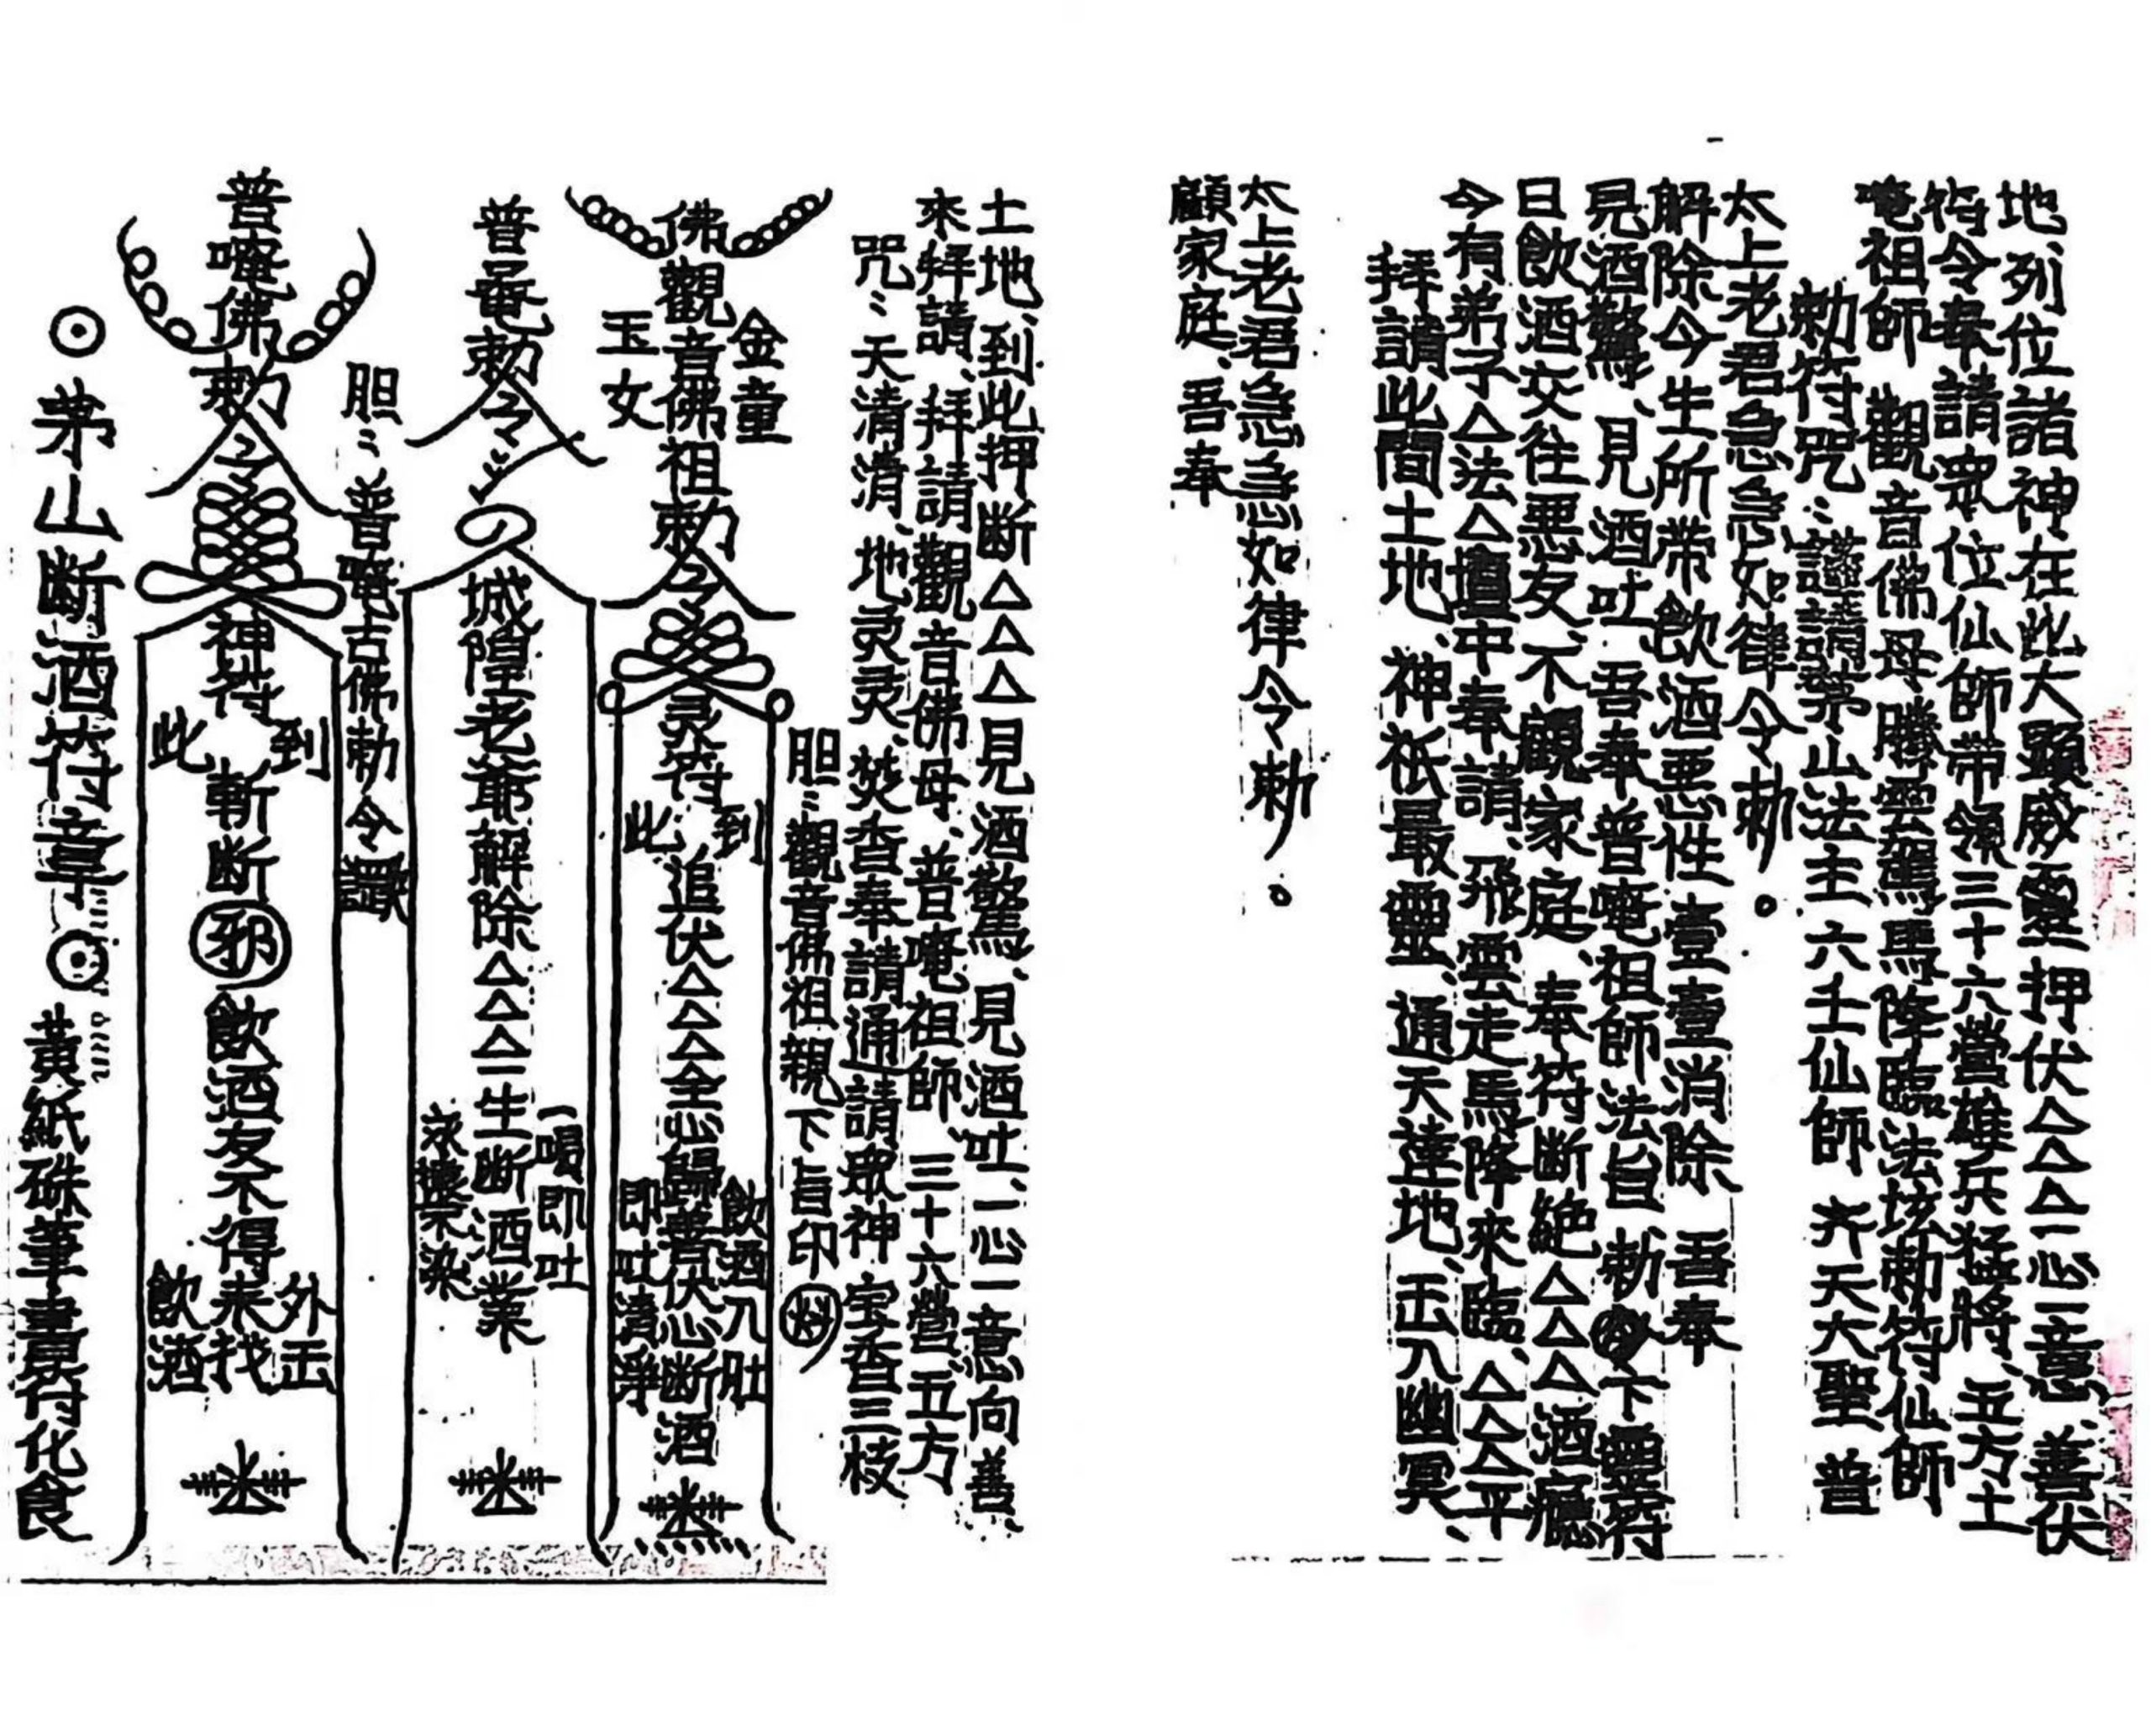 地、列位諸神在此大顯威靈 押伏△△△一心一意、善伏
符令奉請眾位仙師带領三十六營雄兵猛將、五方土
唵祖師 觀音佛母騰雲駕馬降臨法坛勅符仙師
勅符咒：謹請茅山法主 六壬仙師 齐天大聖 普
太上老君急急如律令勅。
解除今生所带飲酒惡性壹壹消除 吾奉
見酒驚、見酒吐、吾奉普唵祖師法旨 勅下靈符
日飲酒交往悪友、不觀家庭、奉符断絶△△△酒癮
今有弟子△法△壇中奉請、飛雲走馬降來臨、△△△平
拜請此間土地、神祇最靈、通天達地、出入幽冥、
太上老君急急如律令勅。
顧家庭、吾奉
土地、到此押断△△△見酒驚、見酒吐、一心一意向善、
來拜請、拜請觀音佛母、普唵祖師、三十六營、五方
咒：天清清、地灵灵、焚香奉請通請眾神 宝香三枝
胆：觀音佛祖親下旨印
金童
佛觀音佛祖勅令
玉女
灵符
到此
追伏△△△全恶歸善伏心断酒
飲酒入肚
即吐清淨
普唵勅令
城隍老爺解除△△△一生断酒業
一喝即吐
永遠不染
胆：普唵古佛勅令
普唵佛勅令
神符
到此
斬断邪飲酒友不得来找
外出
飲酒
⊙茅山断酒符章⊙
黃紙硃筆書符化食